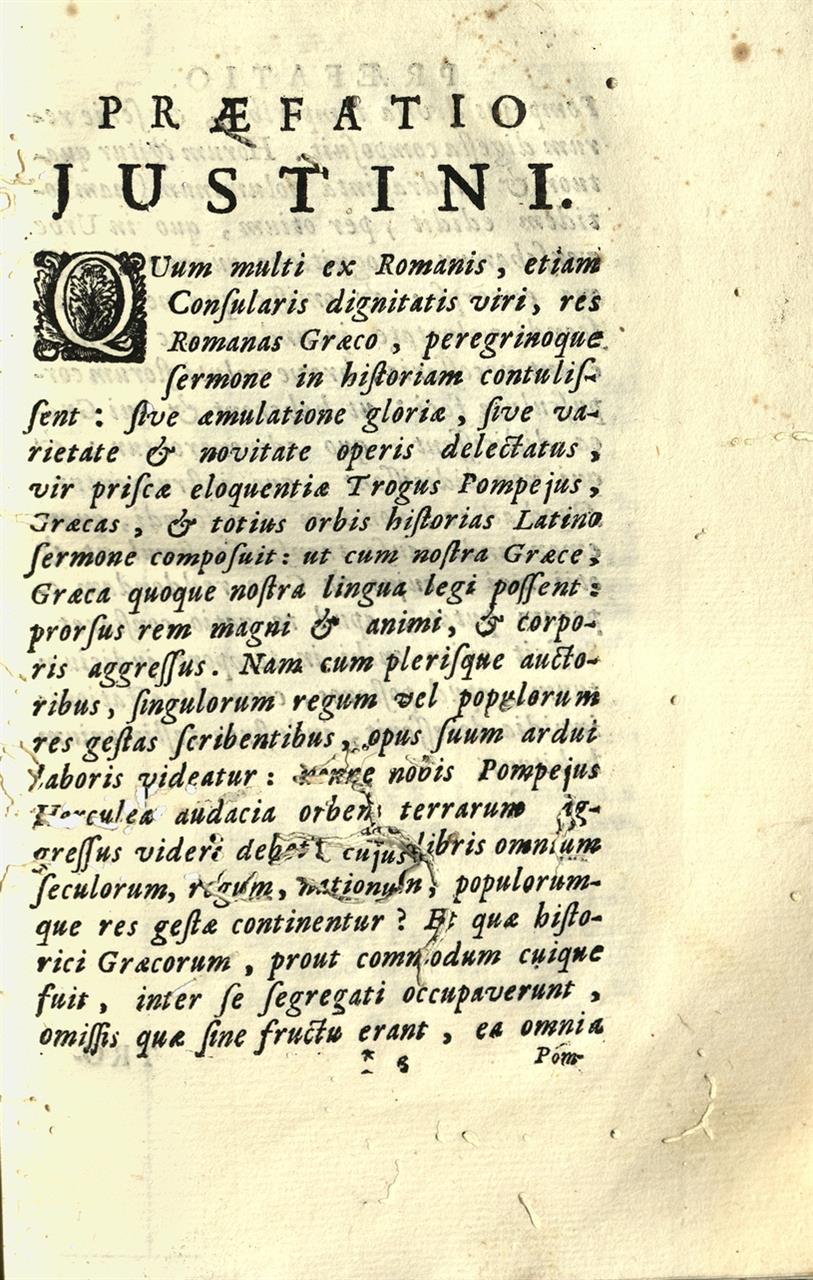 PRÆFATIO
JUSTINI.
QUum multi ex Romanis, etiam
Conſularis dignitatis viri, res
Romanas Græco, peregrinoque
ſermone in hiſtoriam contuliſ-
ſent: ſive æmulatione gloriæ, ſive va-
rietate & novitate operis delectatus,
vir priſcæ eloquentiæ Trogus Pompejus,
Græcas, & totius orbis hiſtorias Latino
ſermone compoſuit: ut cum noſtra Græce,
Græca quoque noſtra lingua legi poſſent:
prorſus rem magni & animi, & corpo-
ris aggreſſus. Nam cum pleriſque aucto-
ribus, ſingulorum regum vel populorum
res geſtas ſcribentibus, opus ſuum ardui
laboris videatur: nonne nobis Pompejus
Herculea audacia orbem terrarum ag-
greſſus videri debet, cujus libris omnium
ſeculorum, regum, nationum, populorum-
que res geſtæ continentur? Et quæ hiſto-
rici Græcorum, prout commodum cuique
fuit, inter ſe ſegregati occupaverunt,
omiſſis quæ ſine fructu erant, ea omnia
Pom-